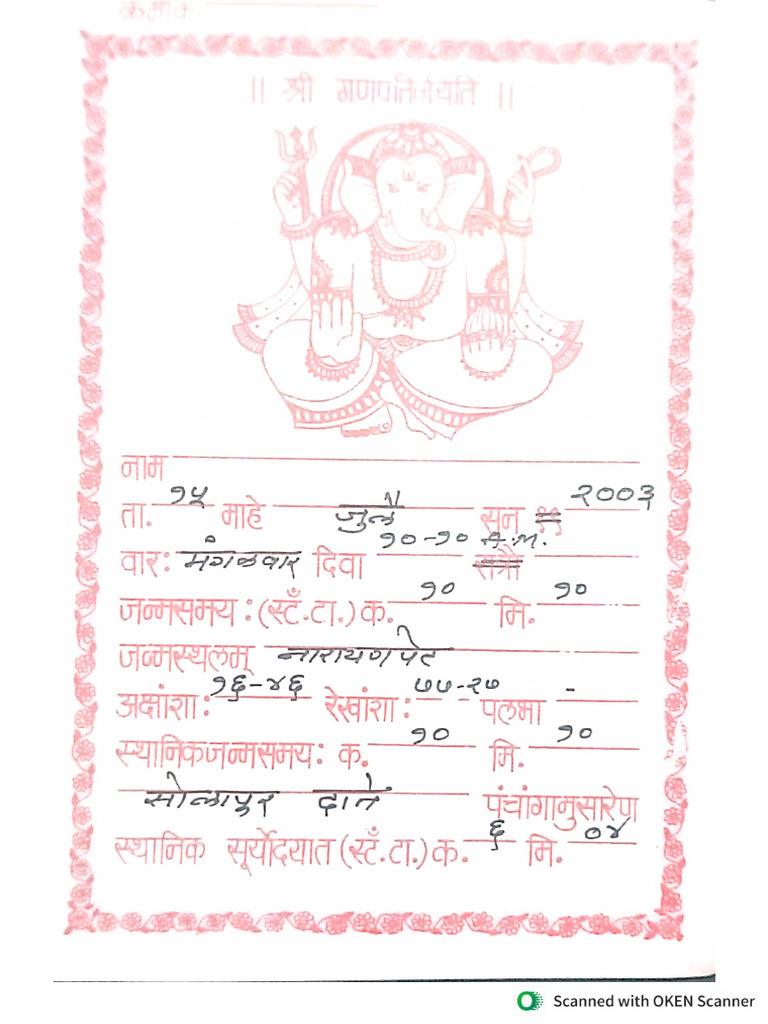 क्रमांक
|| श्री गणपतिर्जयति ||
नाम
ता. १५ माहे जुलै सन १९ २००३
वार: मंगळवार दिवा १०-१० A.M. रात्रौ
जन्मसमय: (स्टँ.टा.) क. १० मि. १०
जन्मस्थलम् नारायणपेट
अक्षांशा: १६-४६ रेखांशा: ७७-२७ पलभा -
स्थानिकजन्मसमय: क. १० मि. १०
सोलापूर दाते पंचांगानुसारेण
स्थानिक सूर्योदयात (स्टँ.टा.) क. ६ मि. ०४
Scanned with OKEN Scanner